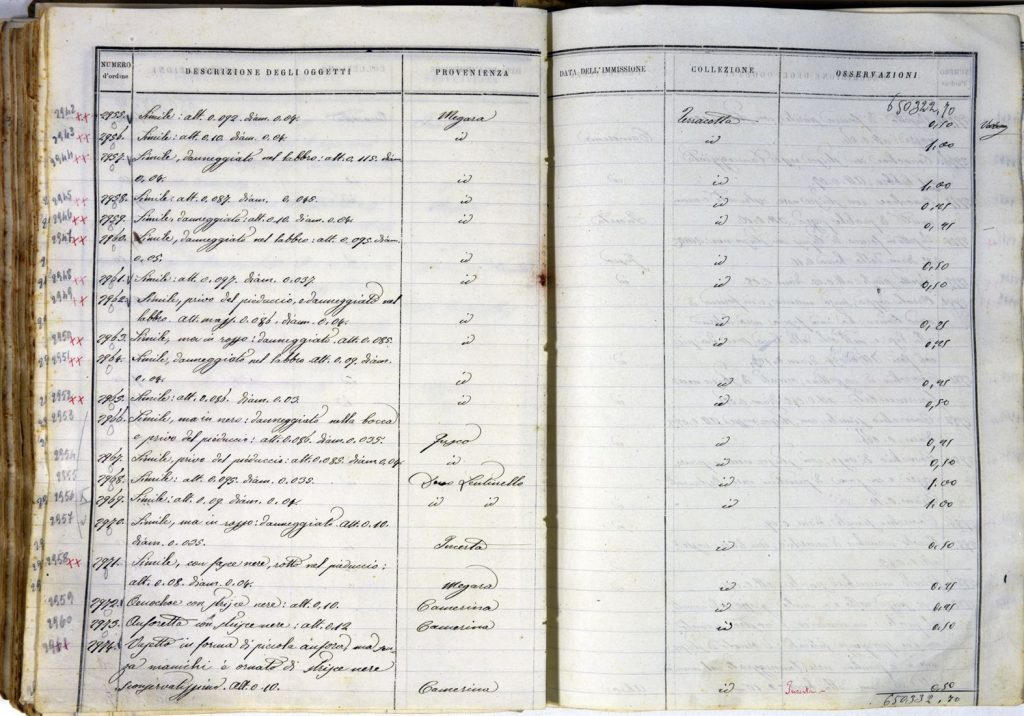 NUMERO d'ordine DESCRIZIONE DEGLI OGGETTI PROVENIENZA DATA DELL'IMMISSIONE COLLEZIONE OSSERVAZIONI
650322,70
2942 xx 2955. Simile: alt. 0.092. diám. 0.04. Megara Terracotta 0,50
2943 xx 2956. Simile: alt. 0.10. diám. 0.04. id id 1,00
2944 xx 2957. Simile, danneggiato nel labbro: alt. 0.115. diám.
0.04. id id 1,00
2945 xx 2958. Simile: alt. 0.087. diám. 0.045. id id 0,25
2946 xx 2959. Simile, danneggiato: alt. 0.10. diám. 0.04 id id 0,25
2947 xx 2960. Simile, danneggiato nel labbro: alt. 0.095. diám.
0.05. id id 0,50
2948 xx 2961. Simile: alt. 0.097. diám. 0.037. id id 0,50
2949 xx 2962. Simile, privo del pieduccio, e danneggiato nel
labbro. Alt. mass. 0.086. diám. 0.04. id id 0,25
2950 xx 2963. Simile, ma in rosso: danneggiato. Alt. 0.085. id id 0,25
2951 xx 2964. Simile, danneggiato nel labbro. Alt. 0.09. diám.
0.04. id id 0,25
2952 xx 2965. Simile: alt. 0.086. diám. 0.03. id id 0,50
2953 2966. Simile, ma in nero: danneggiato nella bocca
e privo del pieduccio: alt. 0.086. diám. 0.035. id 0,25
2954 2967. Simile, privo del pieduccio: alt. 0.085. diám. 0.04. id id 0,50
2955 2968. Simile: alt. 0.095. diám. 0.035. Lentinello id 1.00
2956 2969. Simile: alt. 0.09. diám. 0.04. id id id 1.00
2957 2970. Simile, ma in rosso: danneggiato. Alt. 0.10.
diám. 0.035. Incerta id 0,50
2958 xx 2971. Simile, con fasce nere, rotto nel pieduccio:
alt. 0.08. diám. 0.04. Megara id 0,25
2959 2972. Oenochoe con strisce nere: alt. 0.10. Camerina id 0,25
2960 2973. Anforetta con strisce nere: alt. 0.12 Camerina id 0,50
2961 2974. Vasetto in forma di piccola anfora, ma sen
za manichi è ornato di strisce nere
Alt. 0.10. Camerina id 0,50
650332,70